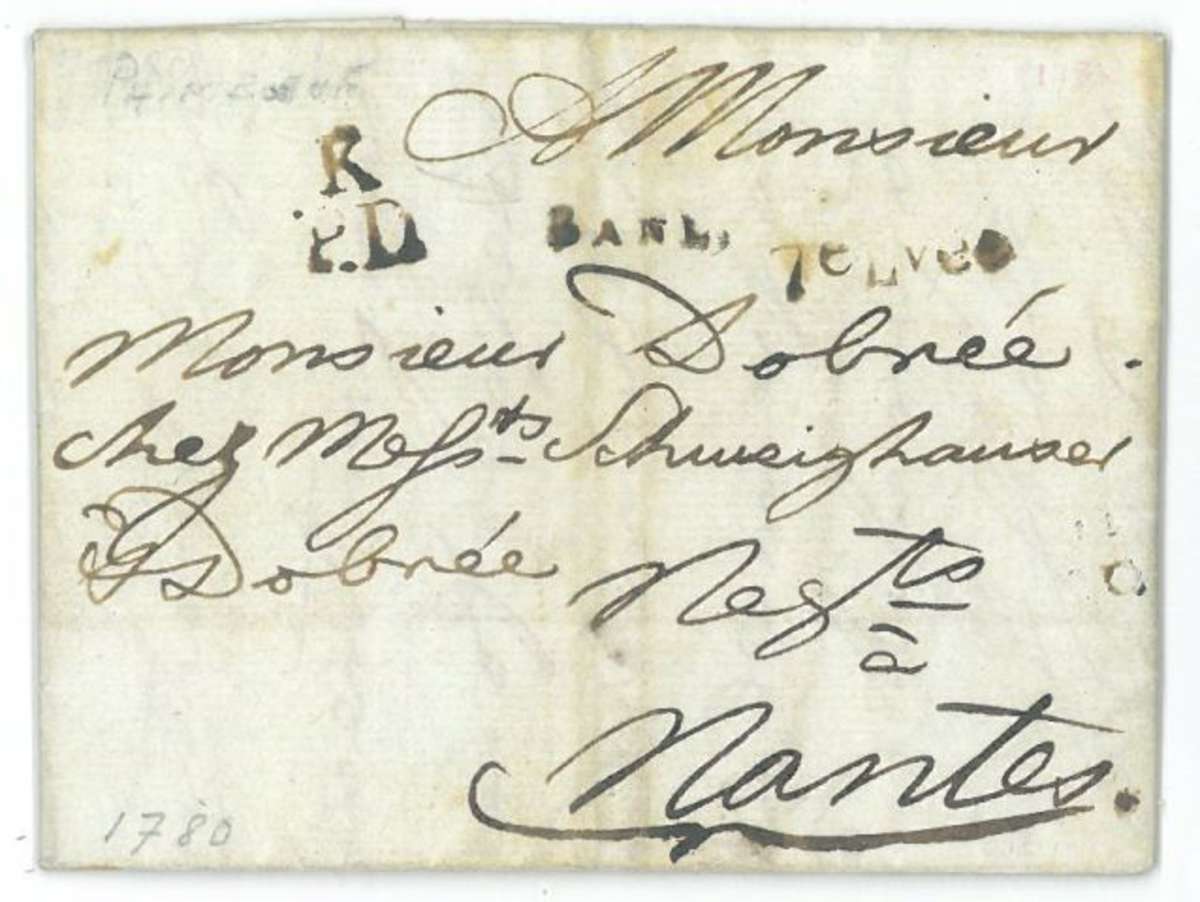 A Monsieur
R
P.D
BANL,
Monsieur Dobrée.
chez Messts Schweighauser
& Dobrée
Negts
à
Nantes.
1780